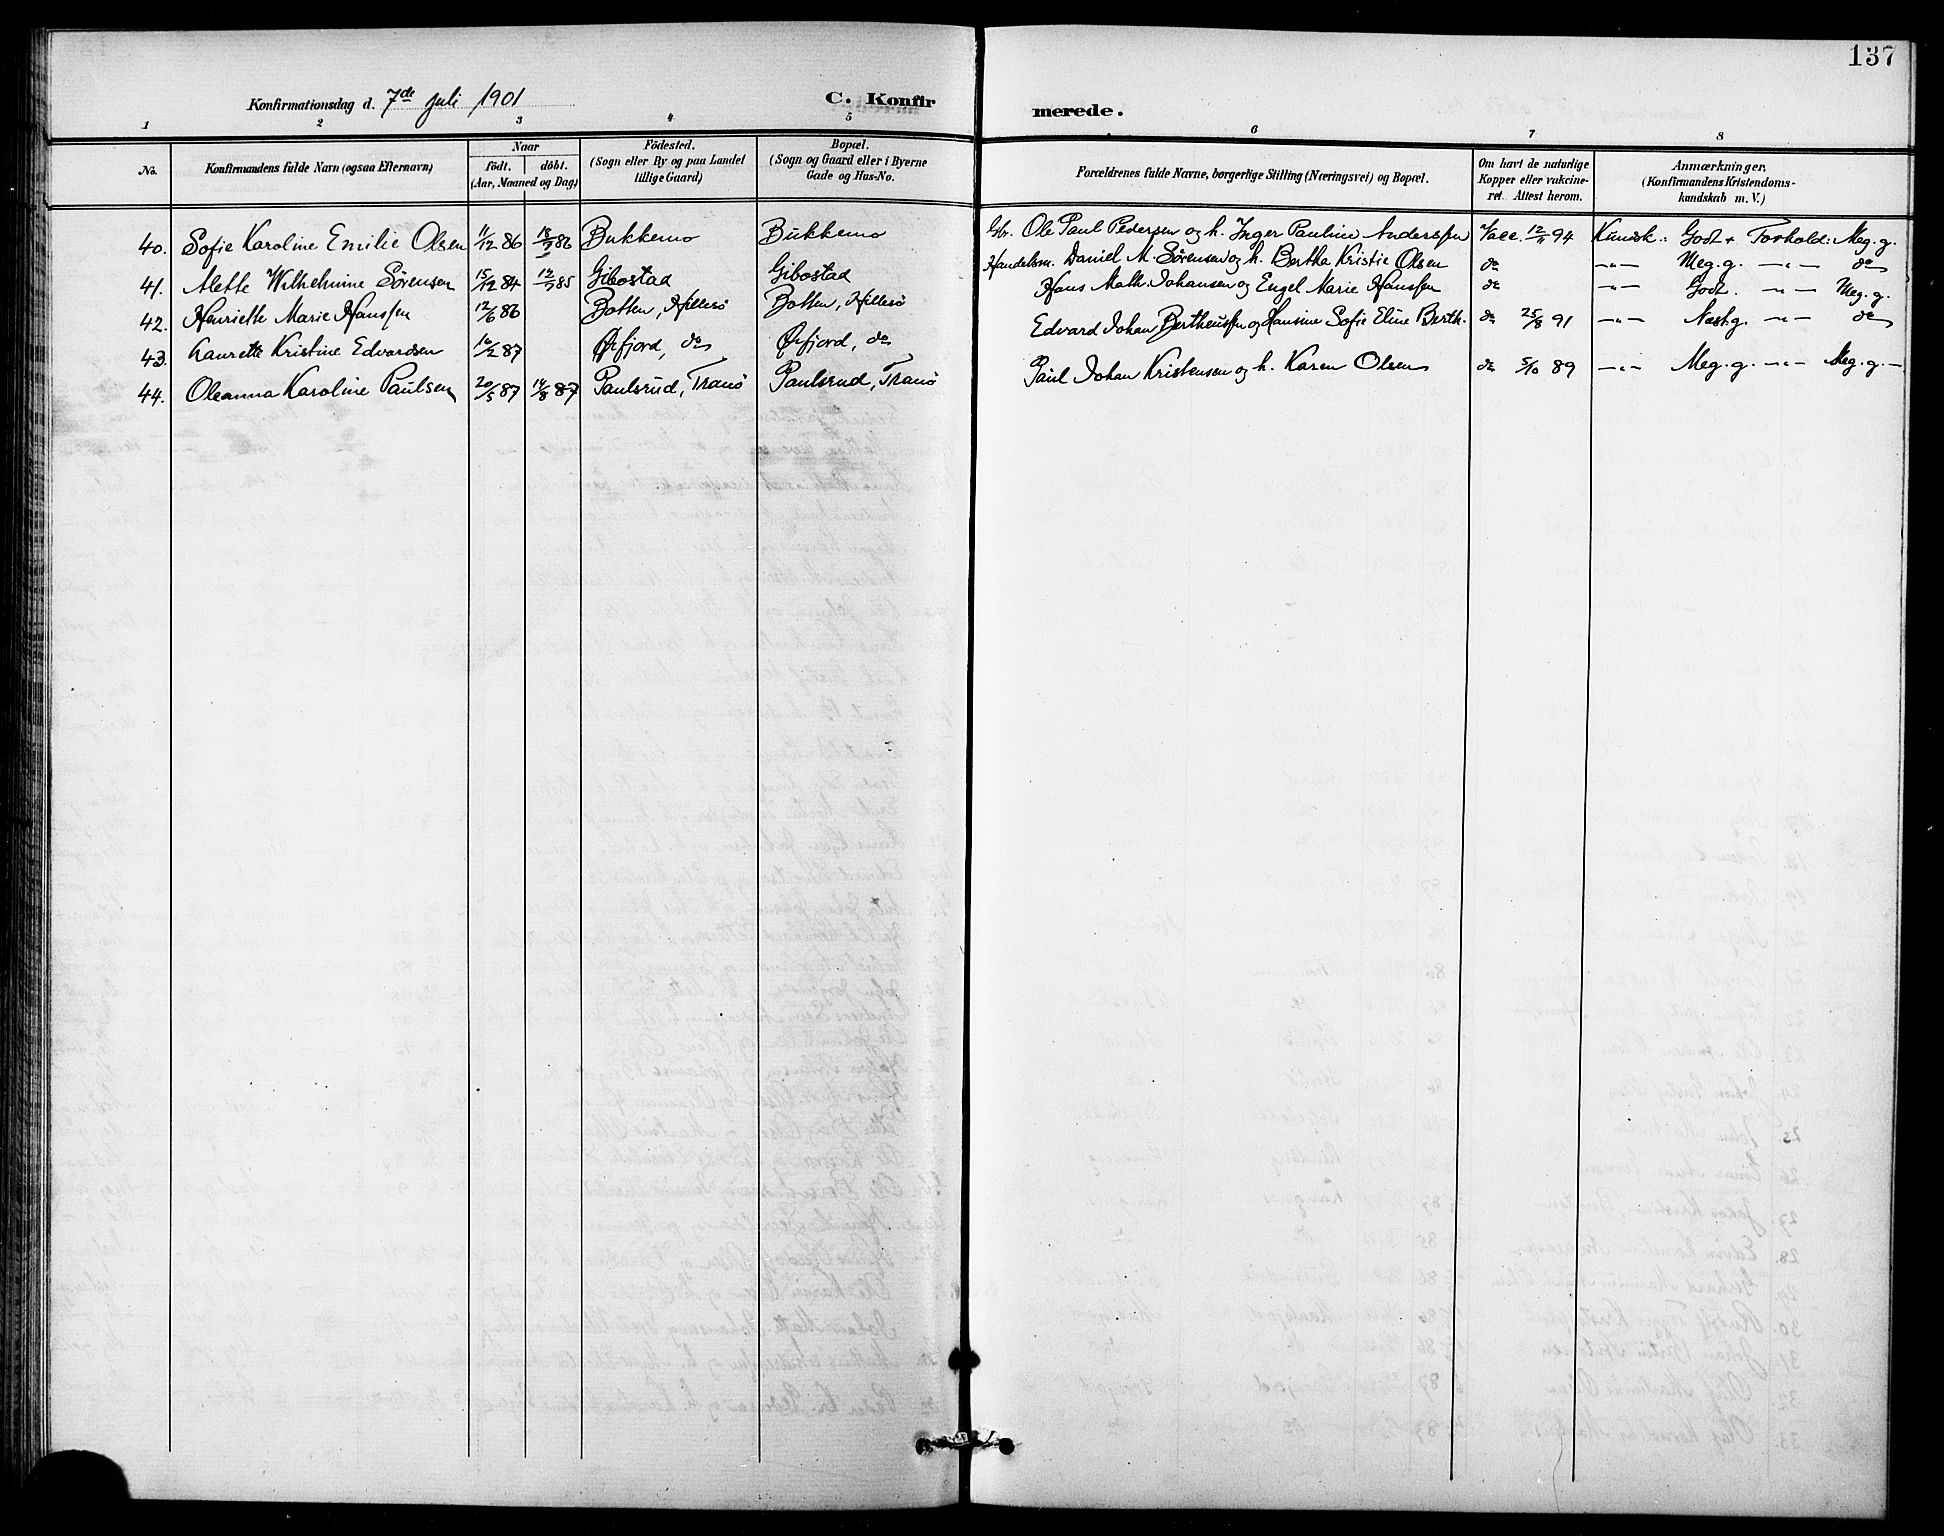 137
Konfirmationsdag d. 7de Juli 1901 C. Konfir merede.
1 2 3 4 5 6 7 8
No. Konfirmandens fulde Navn (ogsaa Efternavn) Naar födt. döbt. (Aar, Maaned og Dag) Födested. (Sogn eller By og paa Landet tillige Gaard) Bopæl. (Sogn og Gaard eller i Byerne Gade og Hus-No. Forældrenes fulde Navne, borgerlige Stilling (Næringsvei) og Bopæl. Om havt de naturlige Kopper eller vakcineret. Attest herom. Anmærkninger, (Konfirmandens Kristendomskundskab m. V.)
40. Sofie Karoline Emilie Olsen 11/12 86 86 Bukkemo Bukkemo Gbr. Ole Paul Pedersen og h. Inger Pauline Anderssen Vacc. 12/11 94 Kundsk.: Godt + Forhold: Meg. g.
41. Alette Wilhelmine Sørensen 15/12 84 85 Gibostad Gibostad Handelsm. Daniel M. Sørensen og h. Bertha Kristie Olsen do —"— Meg. g. —"— do
42. Henriette Marie Hanssen 12/6 86 Botten, Hillesö Botten, Hillesö Hans Math. Johansen og Engel Marie Hanssen do —"— Godt. —"— Meg. g.
43. Laurette Kristine Edvardsen 16/2 87 Øxfjord, do Øxfjord, do Edvard Johan Bertheussen og Hansine Sofie Eline Berth. do 25/8 91 —"— Næst. g. —"— do
44. Oleanna Karoline Paulsen 20/5 87 14/8 87 Paulsrud, Tranö Paulsrud, Tranö Paul Johan Kristensen og h. Karen Olsen do 5/10 89 —"— Meg. g. —"— Meg. g.—